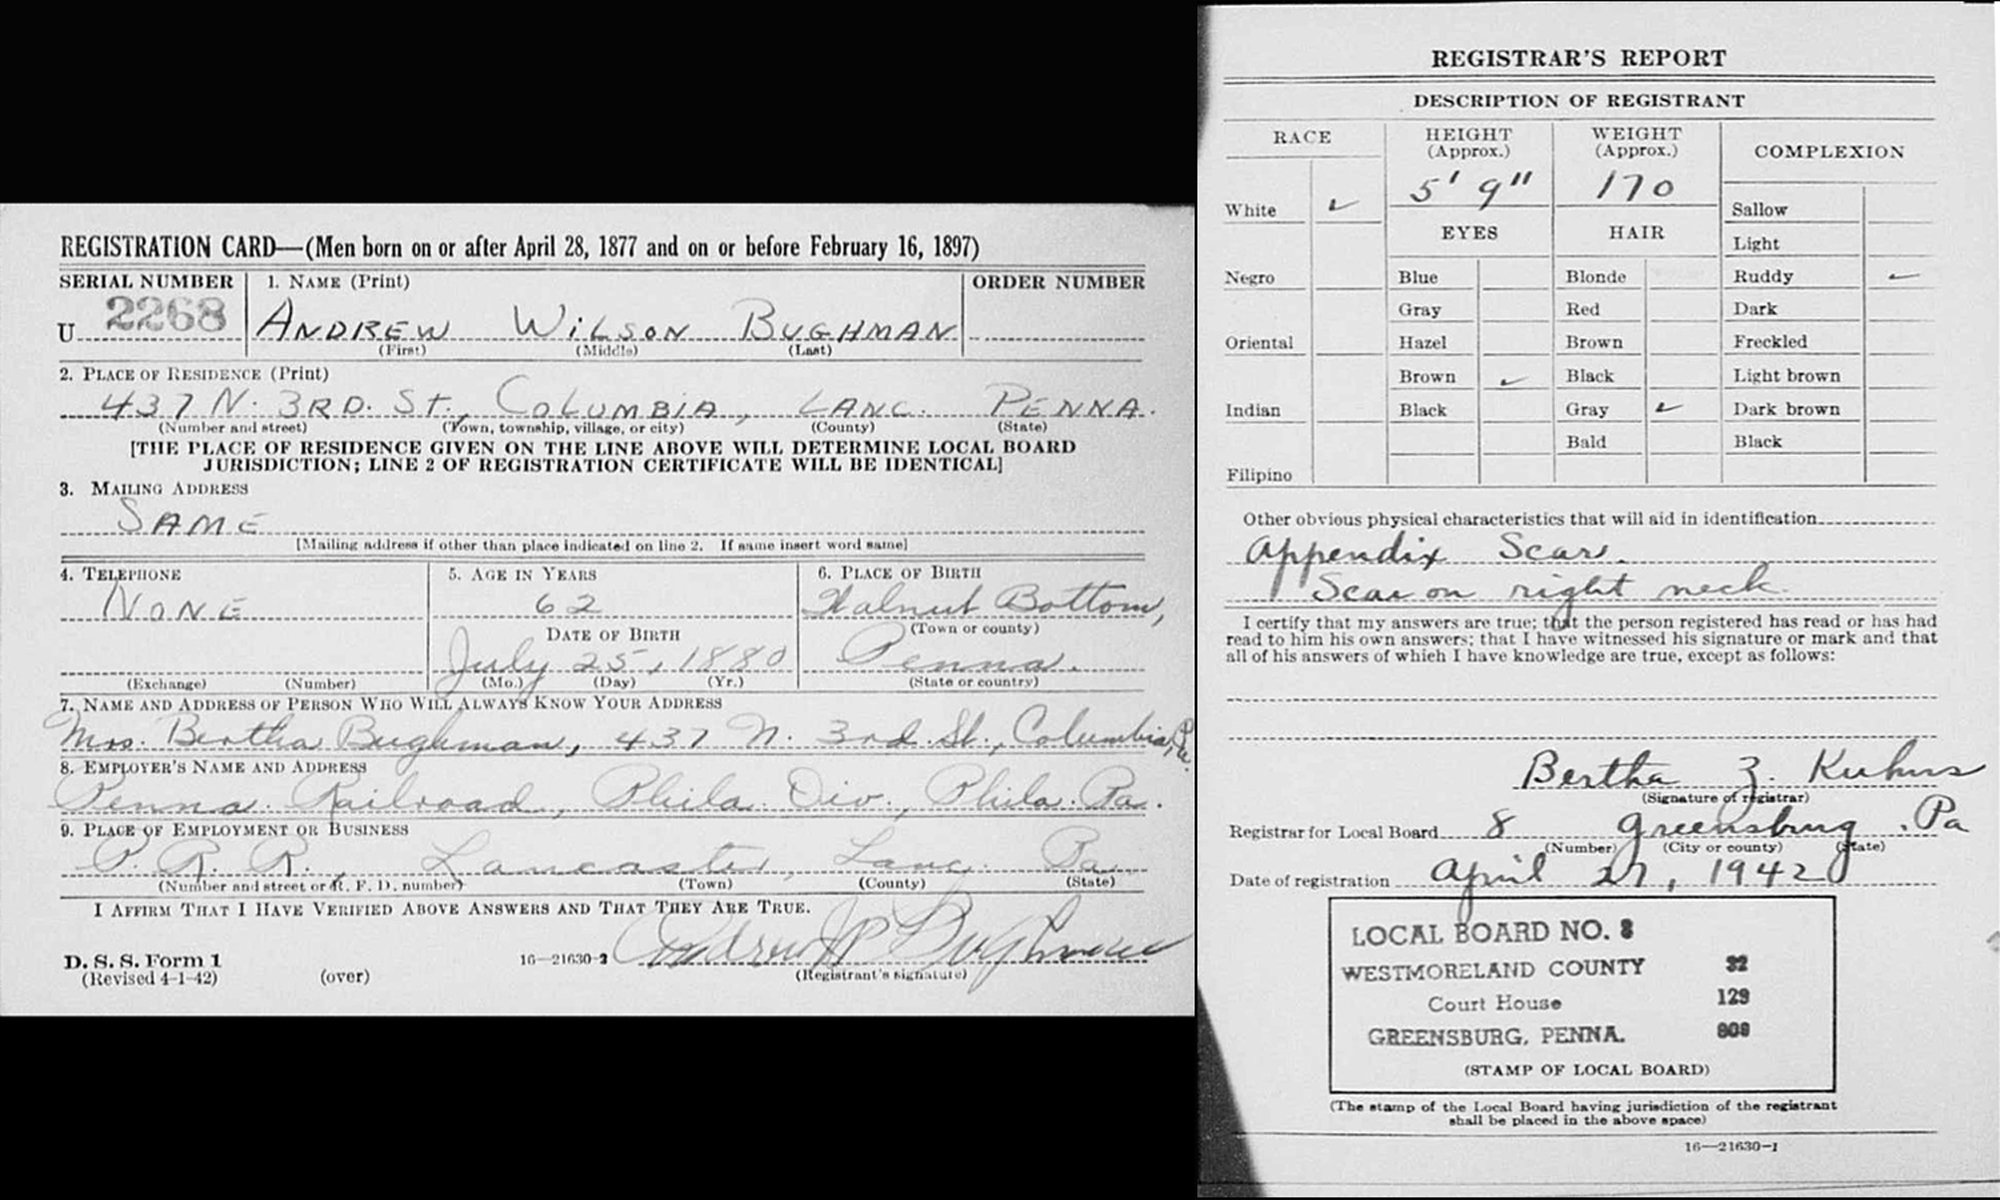 REGISTRATION CARD—(Men born on or after April 28, 1877 and on or before February 16, 1897)
SERIAL NUMBER
1. NAME (Print)
ORDER NUMBER
U 2268
ANDREW WILSON BUGHMAN
(First) (Middle) (Last)
2. PLACE OF RESIDENCE (Print)
437 N. 3RD. ST., COLUMBIA, LANC. PENNA.
(Number and street) (Town, township, village, or city) (County) (State)
[THE PLACE OF RESIDENCE GIVEN ON THE LINE ABOVE WILL DETERMINE LOCAL BOARD
JURISDICTION; LINE 2 OF REGISTRATION CERTIFICATE WILL BE IDENTICAL]
3. MAILING ADDRESS
SAME
[Mailing address if other than place indicated on line 2. If same insert word same]
4. TELEPHONE
NONE
(Exchange) (Number)
5. AGE IN YEARS
62
DATE OF BIRTH
July 25, 1880
(Mo.) (Day) (Yr.)
6. PLACE OF BIRTH
Walnut Bottom,
(Town or county)
Penna.
(State or country)
7. NAME AND ADDRESS OF PERSON WHO WILL ALWAYS KNOW YOUR ADDRESS
Mrs. Bertha Bughman, 437 N. 3rd. St., Columbia, Pa.
8. EMPLOYER'S NAME AND ADDRESS
Penna. Railroad, Phila. Div., Phila. Pa.
9. PLACE OF EMPLOYMENT OR BUSINESS
P. R. R., Lancaster, Lanc. Pa.
(Number and street or R. F. D. number) (Town) (County) (State)
I AFFIRM THAT I HAVE VERIFIED ABOVE ANSWERS AND THAT THEY ARE TRUE.
D. S. S. Form 1
(Revised 4-1-42)
(over)
16—21630-2
Andrew W Bughman
(Registrant's signature)
REGISTRAR'S REPORT
DESCRIPTION OF REGISTRANT
RACE
HEIGHT
(Approx.)
WEIGHT
(Approx.)
COMPLEXION
5' 9"
170
White ✓
Sallow
EYES
HAIR
Light
Negro
Blue
Blonde
Ruddy ✓
Gray
Red
Dark
Oriental
Hazel
Brown
Freckled
Brown ✓
Black
Light brown
Indian
Black
Gray ✓
Dark brown
Bald
Black
Filipino
Other obvious physical characteristics that will aid in identification
Appendix Scar.
Scar on right neck.
I certify that my answers are true; that the person registered has read or has had
read to him his own answers; that I have witnessed his signature or mark and that
all of his answers of which I have knowledge are true, except as follows:
Bertha Z. Kuhns
(Signature of registrar)
Registrar for Local Board 8 Greensburg, Pa
(Number) (City or county) (State)
Date of registration April 27, 1942
LOCAL BOARD NO. 8
WESTMORELAND COUNTY 32
Court House 129
GREENSBURG, PENNA. 808
(STAMP OF LOCAL BOARD)
(The stamp of the Local Board having jurisdiction of the registrant
shall be placed in the above space)
16—21630-1